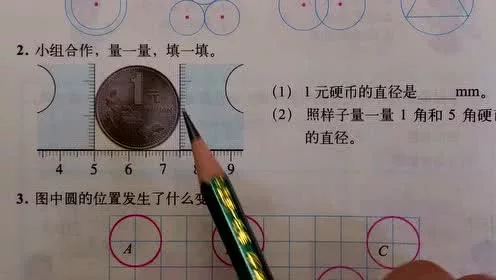 2. 小组合作，量一量，填一填。
1
元
(1) 1元硬币的直径是_____mm。
(2) 照样子量一量1角和5角硬
的直径。
4 5 6 7 8 9
3. 图中圆的位置发生了什么
A C